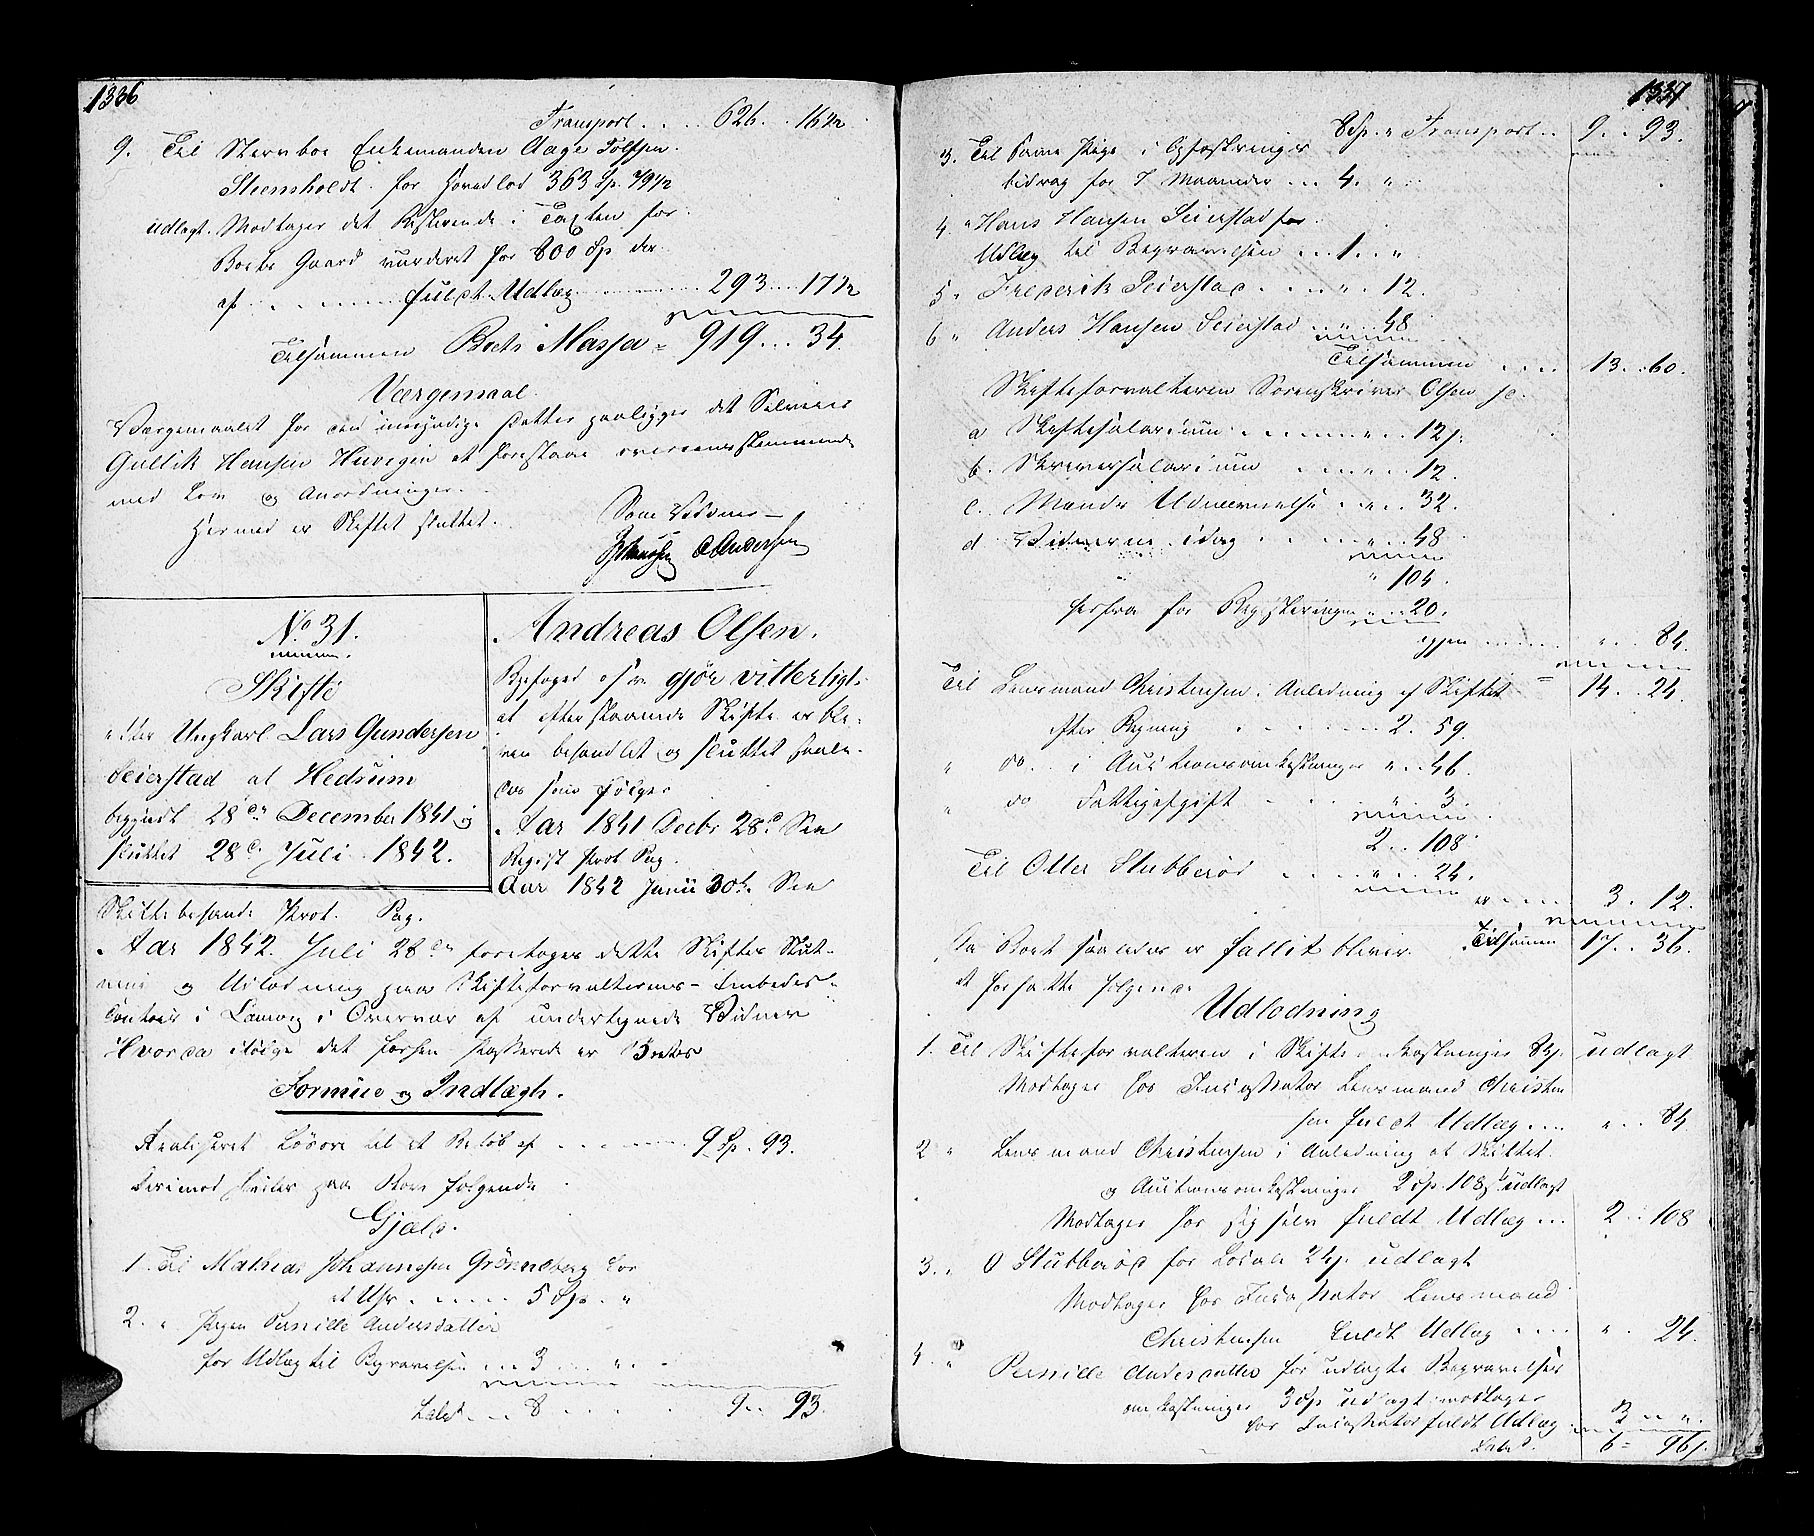 1336
Transport . . . 626 . . 16 1/2
9. Til Stervboe Enkemanden Aage Tolfsen
Steensholdt for Hovedlod 363 Sp. 79 1/2
udlagt. Modtager det Resterende i Taxten for
Boets Gaard vurderet for 800 Sp der
af . . . . . fuldt Udlæg . . . . . 293 . . . 17 1/2
Tilsammen Boets Massa = 919 . . . 34.
Værgemaal
Værgemaalet for den umyndige Datter paaligger det Selveier
Gullik Hansen Huvegen at forestaae overeensstemmende
med Lov og Anordninger.
Hermed er Skiftet sluttet.
Som Vidner —
C Andersen
No 31.
Skifte
efter Ungkarl Lars Gundersen
Seierstad at Hedrum
begyndt 28de December 1841 og
sluttet 28de Juli 1842.
Andreas Olsen.
Byefoged osv gjør vitterligt
at efterstaaende Skifte er ble-
ven behandlet og sluttet saale-
des som følger
Aar 1841 Decbr 28de See
Regist Prot Pag.
Aar 1842 Junii 30te See
Skiftebehandl Prot. Pag.
Aar 1842 Juli 28de foretoges dette Skiftes Slut-
ning og Udlodning paa Skifteforvalterens Embeds-
Contoir i Laurvig i Overvær af undertegnede Vidner
Hvorda ifølge det forhen passerede er Boets
Formue og Indtægt.
Realiseret Løsøre til et Beløb af . . . . . 9 Sp. 93.
Derimod hviler paa Boet følgende
Gjæld.
1. Til Mathias Johannesen Grønneberg for
et Uhr . . . . . 5 Sp. . "
2. " Pigen Pernille Andersdatter
for Udlæg til Begravelsen . . . 3 . . . " .
Lateris . . . 8 . . . . 9 . . 93.
1337
Sp. " Transport . . 9 . . 93.
3. Til Samme Pige i Opfostrings
bidrag for 7 Maaneder . . . 4. "
4. " Hans Hansen Seierstad for
Udlæg til Begravelsen . . . 1. . "
5 " Frederik Seierstad . . . . " . 12.
6 " Anders Hansen Seierstad . . " . . 48
Tilsammen . . . . 13 . . 60.
Skifteforvalteren Sorenskriver Olsen for
a Skiftesalarium . . . . . " . . 12 s.
b. Skriversalarium . . . . " . . 12.
c. Mænds Udnævnelse . . " . . 32.
d Vidnerne idag . . . . " . . 48
" 104.
herfra for Registreringen " . . 20.
igjen . . . . " . . . 84.
Til Lensmand Christensen i Anledning af Skiftet = 14 . . 24.
efter Regning . . . . . 2. 59.
" do . . i Auctionsomkostninger " . . 46.
" do Fattigafgift . . . . " . . 3.
2 . . 108
Til Otter Stubberød . . . . " . . 24.
er . . . . 3. 12.
Da Boet saaledes er fallit bliver Tilsammen 17 . . 36.
at forfatte følgende
Udlodning
1. Til Skifteforvalteren i Skifteomkostninger 84 s. udlagt
Modtager hos Incassator Lensmand Christen
sen fuldt Udlæg . . . . " . . . 84
2 " Lensmand Christensen i Anledning af Skiftet
og Auctionsomkostninger 2 Sp. 108 s udlagt
Modtager hos sig selv fuldt Udlæg . . . 2 . . 108
3. " O Stubberød for Locale 24 s. udlagt
Modtager hos Incassator Lensmand
Christensen fuldt Udlæg . . . . " . 24.
4. " Pernille Andersdatter for udlagte Begravelses
omkostninger 3 Sp udlagt modtager
hos Incassator fuldt Udlæg . 3 . . ".
Lateris. 6 = 96 s.